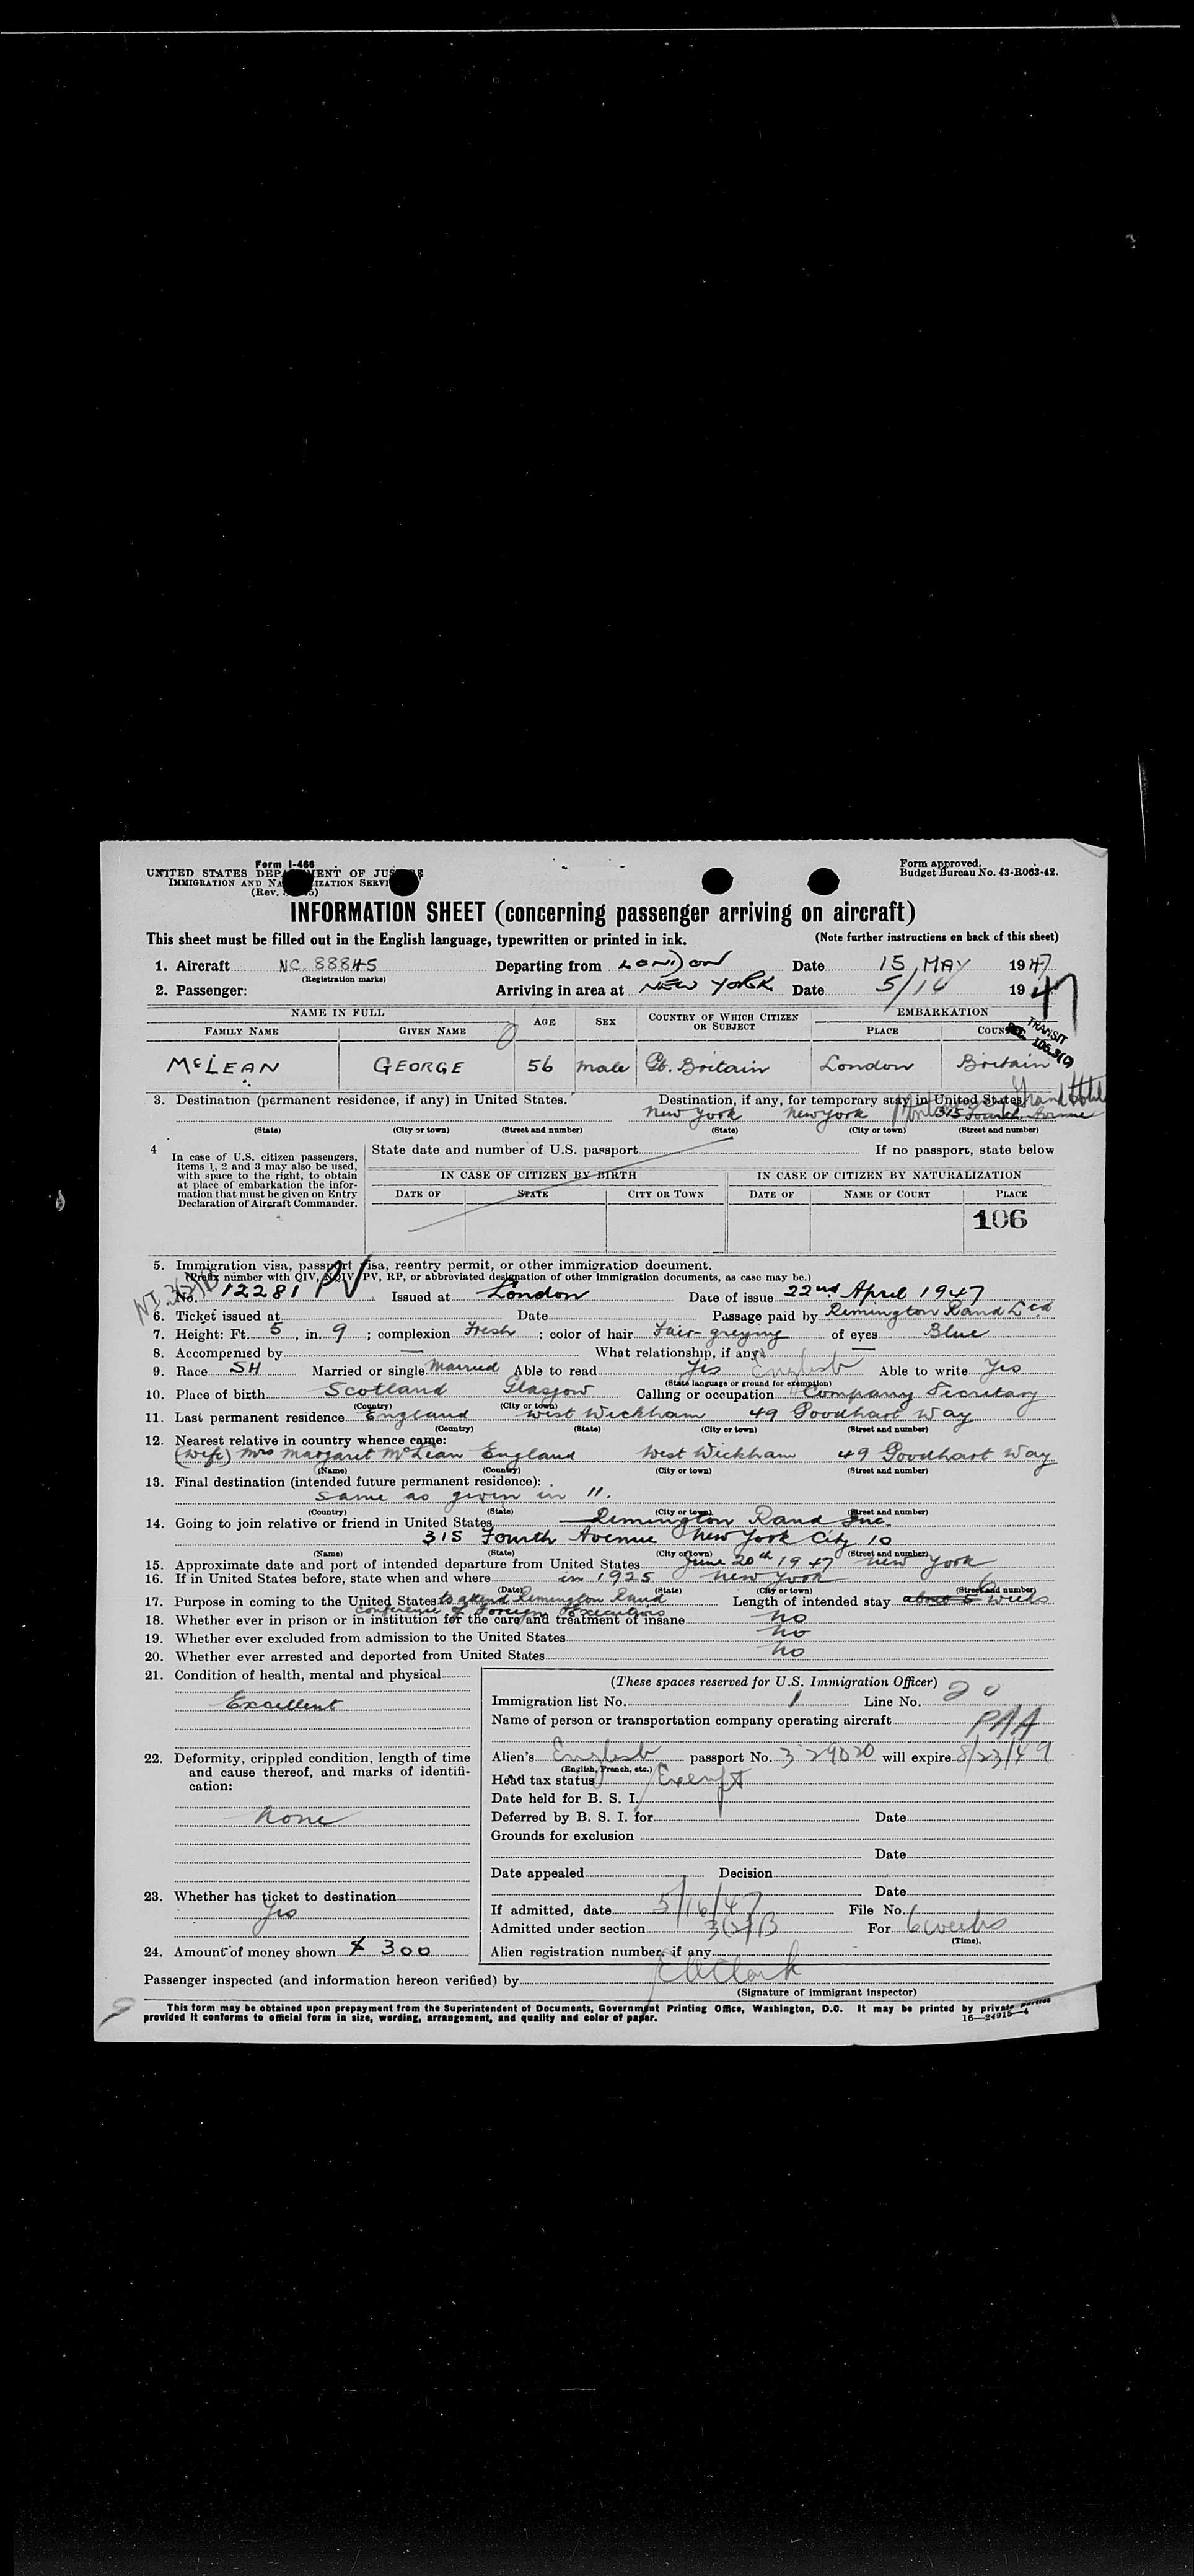 Form I-466
UNITED STATES DEPARTMENT OF JUSTICE
IMMIGRATION AND NATURALIZATION SERVICE
(Rev.
Form approved.
Budget Bureau No. 43-R063-42.
INFORMATION SHEET (concerning passenger arriving on aircraft)
This sheet must be filled out in the English language, typewritten or printed in ink. (Note further instructions on back of this sheet)
1. Aircraft NC. 88845 Departing from LONDON Date 15 MAY 1947
(Registration marks)
2. Passenger: Arriving in area at NEW YORK Date 5/16 1947
NAME IN FULL AGE SEX COUNTRY OF WHICH CITIZEN OR SUBJECT EMBARKATION
FAMILY NAME GIVEN NAME PLACE COUNTRY
TRANSIT
SEC. 106.3(c)
McLEAN GEORGE 56 male Gt. Britain London Britain
3. Destination (permanent residence, if any) in United States. Destination, if any, for temporary stay in United States.
Grand Hotel
New York New York 315 Fourth Avenue
(State) (City or town) (Street and number) (State) (City or town) (Street and number)
4 In case of U.S. citizen passengers, items 1, 2 and 3 may also be used, with space to the right, to obtain at place of embarkation the information that must be given on Entry Declaration of Aircraft Commander.
State date and number of U.S. passport If no passport, state below
IN CASE OF CITIZEN BY BIRTH IN CASE OF CITIZEN BY NATURALIZATION
DATE OF STATE CITY OR TOWN DATE OF NAME OF COURT PLACE
106
5. Immigration visa, passport visa, reentry permit, or other immigration document.
(Prefix number with QIV, NQIV, PV, RP, or abbreviated designation of other immigration documents, as case may be.)
No. 12281 PV Issued at London Date of issue 22nd April 1947
6. Ticket issued at Date Passage paid by Remington Rand Ltd
7. Height: Ft. 5, in. 9; complexion Fresh; color of hair Fair-greying of eyes Blue
8. Accompanied by — What relationship, if any —
9. Race SH Married or single Married Able to read Yes English Able to write Yes
(State language or ground for exemption)
10. Place of birth Scotland Glasgow Calling or occupation Company Secretary
(Country) (City or town)
11. Last permanent residence England West Wickham 49 Goodhart Way
(Country) (State) (City or town) (Street and number)
12. Nearest relative in country whence came:
(wife) Mrs Margaret McLean England West Wickham 49 Goodhart Way
(Name) (Country) (City or town) (Street and number)
13. Final destination (intended future permanent residence):
same as given in 11.
(Country) (State) (City or town) (Street and number)
14. Going to join relative or friend in United States Remington Rand Inc
315 Fourth Avenue New York City 10
(Name) (State) (City or town) (Street and number)
15. Approximate date and port of intended departure from United States June 20th 1947 New York
16. If in United States before, state when and where in 1925 New York
(Date) (State) (City or town) (Street and number)
17. Purpose in coming to the United States to attend Remington Rand Length of intended stay about 5 6 weeks
conference of Foreign Executives
18. Whether ever in prison or in institution for the care and treatment of insane no
19. Whether ever excluded from admission to the United States no
20. Whether ever arrested and deported from United States no
21. Condition of health, mental and physical
Excellent
22. Deformity, crippled condition, length of time and cause thereof, and marks of identification:
none
23. Whether has ticket to destination
Yes
24. Amount of money shown $ 300
(These spaces reserved for U.S. Immigration Officer)
Immigration list No. 1 Line No. 20
Name of person or transportation company operating aircraft
PAA
Alien's English passport No. 329020 will expire 8/23/49
(English, French, etc.)
Head tax status Exempt
Date held for B. S. I.
Deferred by B. S. I. for Date
Grounds for exclusion
Date
Date appealed Decision
Date
If admitted, date 5/16/47 File No.
Admitted under section 3(2)B For 6 weeks
(Time).
Alien registration number, if any
Passenger inspected (and information hereon verified) by E A Clark
(Signature of immigrant inspector)
This form may be obtained upon prepayment from the Superintendent of Documents, Government Printing Office, Washington, D.C. It may be printed by private parties
provided it conforms to official form in size, wording, arrangement, and quality and color of paper. 16—24915-4